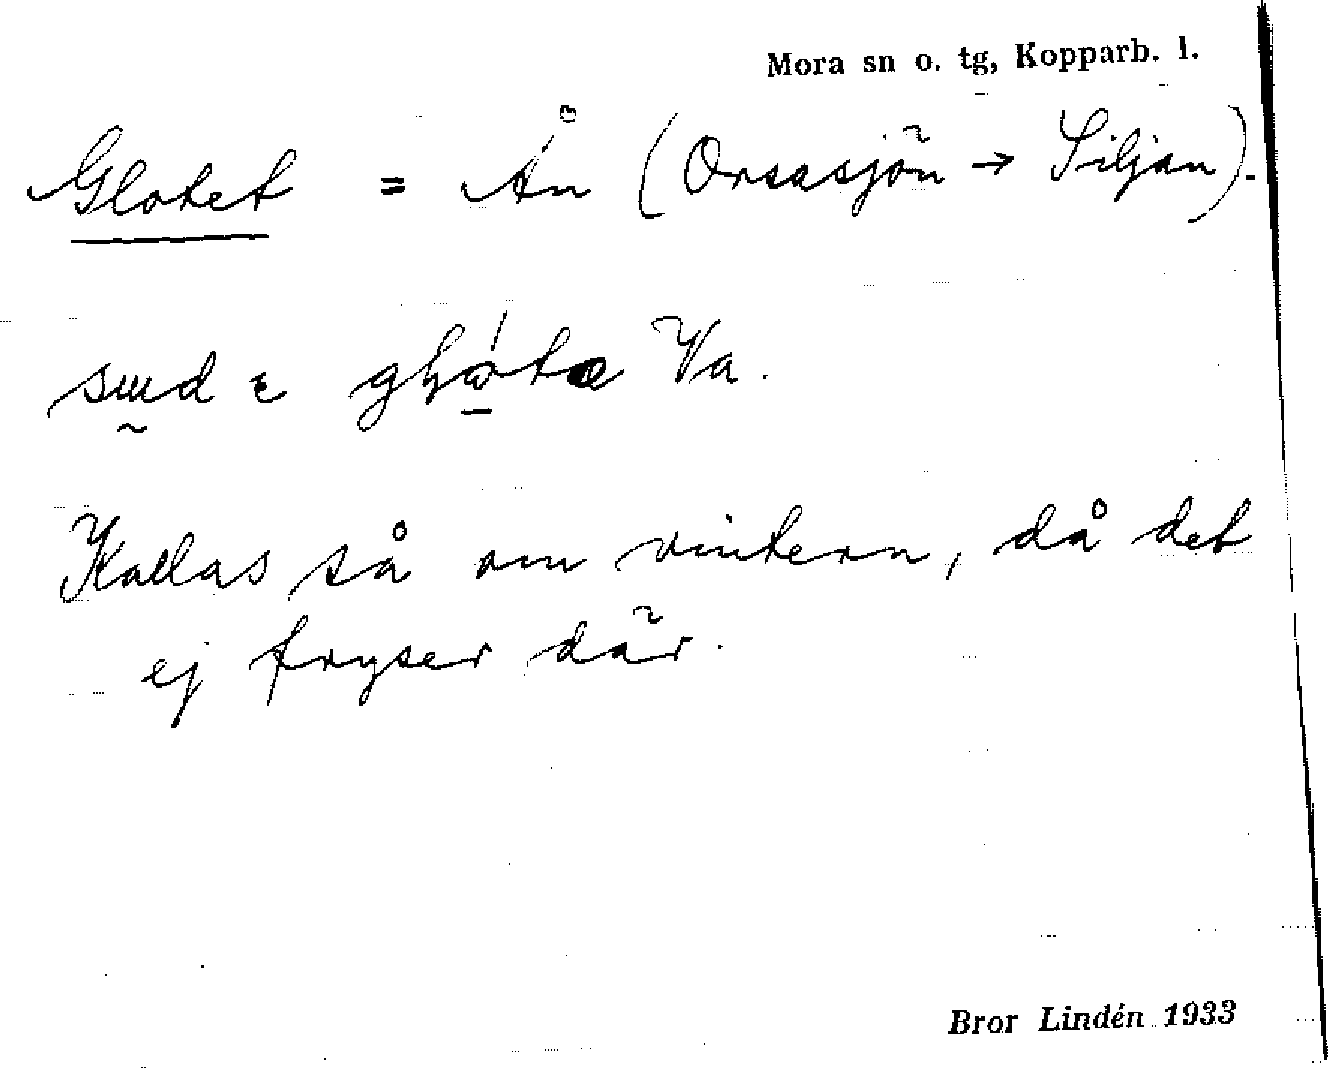 Mora sn o. tg, Kopparb. l.
Glotet = Ån (Orsasjön → Siljan).
Va.
Kallas så om vintern, då det
ej fryser där.
Bror Lindén 1933